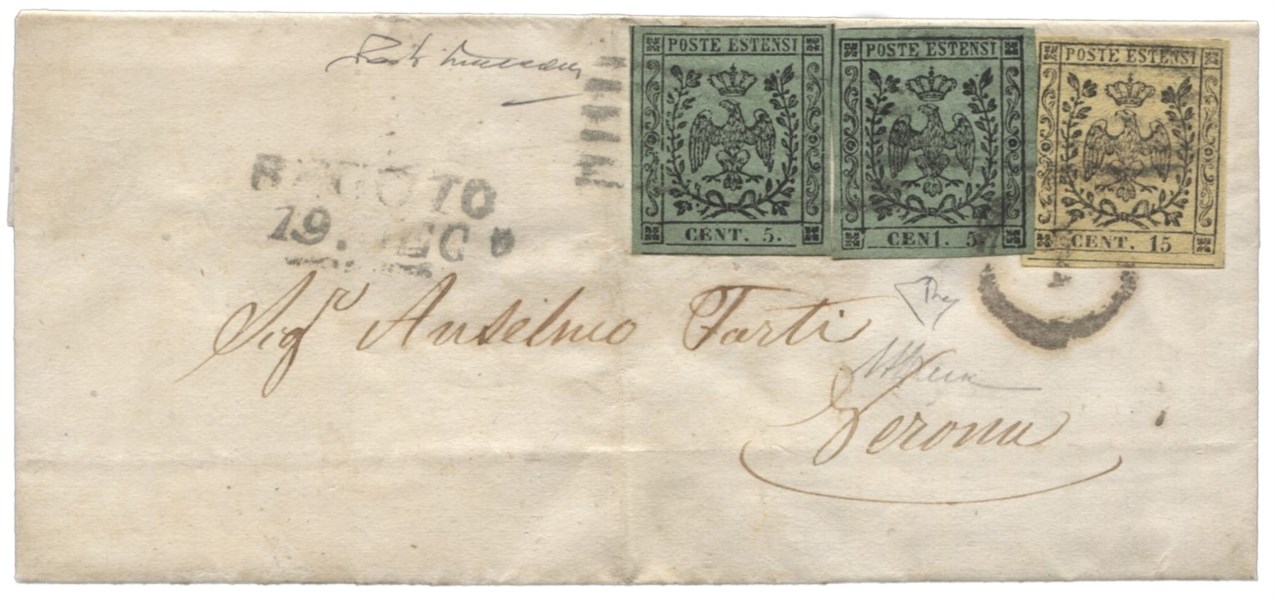 POSTE ESTENSI
CENT. 5.
POSTE ESTENSI
CEN1. 5
POSTE ESTENSI
CENT. 15
19.
Sigʳ Anselmo Forti
Verona